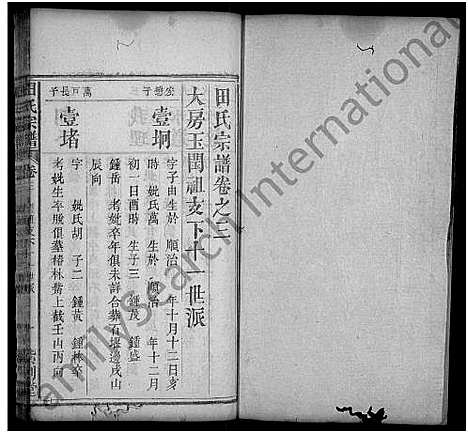 田氏宗譜卷之三
大房玉閏祖支下十一世派
安懋子
壹坰
字子由生於 順治 年十月十二日亥
時 娩氏萬 生於 順治 年十二月
初一日酉時 生子三 鍾茂 鍾盛
鍾岳 考娩卒年俱未詳合葬石堰邊戌山
辰向
萬口長子
壹堵
字 娩氏胡 子二 鍾黃 鍾林卒
考娩生卒歿俱墓椿林嘴上截壬山丙向
田氏宗譜
卷
FamilySearch International